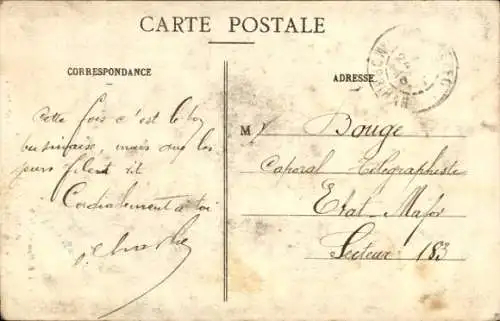 CARTE POSTALE
CORRESPONDANCE
ADRESSE
Cette fois c'est le bon
businaise, mais que les
jours filent vit
Cordialement à toi
M r Bouge
Caporal Télégraphiste
Etat-Major
Secteur 183